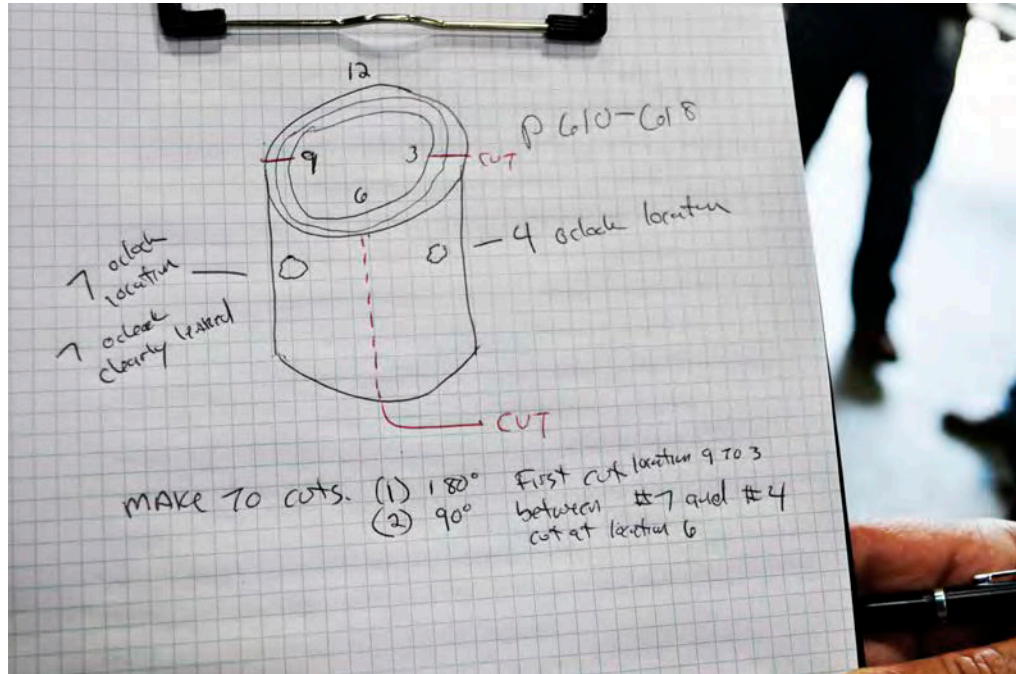 12
P 610-618
9
3
CUT
6
4 oclock location
7 oclock
location
7 oclock
clearly leaked
CUT
MAKE TO CUTS. (1) 180° First cut location 9 TO 3
(2) 90° between #7 and #4
cut at location 6